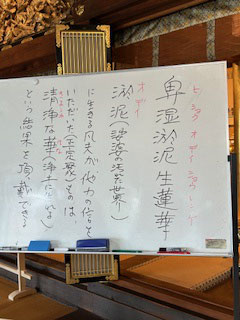 ヒ シツ オ デイ ショウ レン ゲ
卑湿淤泥生蓮華
オ デイ
淤泥(娑婆の迷界世界)
に生きる凡夫が他力の信を
いただいた(正定聚)ものは、
清浄な華(浄土に生れ)
という結果を頂戴できる